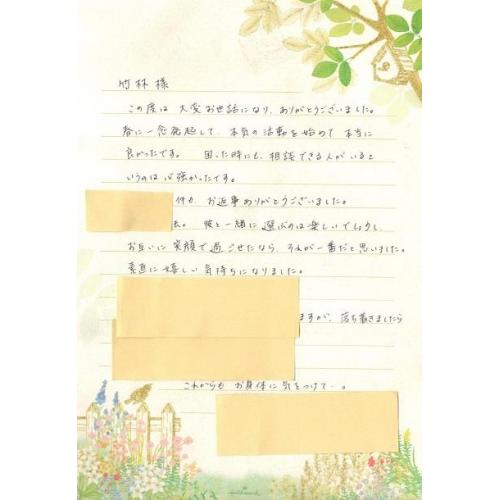 竹林 様
この度は 大変お世話になり、ありがとうございました。
春に一念発起して、本気の活動を始めて 本当に
良かったです。 困った時にも、相談できる人がいると
いうのは心強かったです。
件も お返事ありがとうございました。
彼と一緒に 選ぶのは楽しいでしょうし、
お互いに 笑顔で過ごせたなら、それが一番だと思いました。
素直に嬉しい気持ちになりました。
ますが、落ち着きましたら
これからも お身体に気をつけて…。
Hallmark